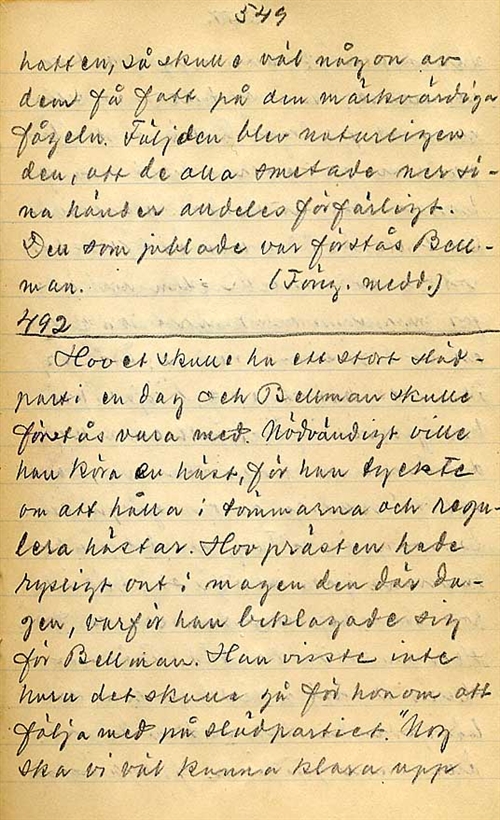 549
hatten, så skulle väl någon av
dem få fatt på den märkvärdiga
fågeln. Följden blev naturligen
den, att de alla smetade ner si-
na händer alldeles förfärligt.
Den som jublade var förstås Bell-
man. (Föreg. medd.)
492
Hovet skulle ha ett stort släd-
parti en dag och Bellman skulle
förstås vara med. Nödvändigt ville
han köra en häst, för han tyckte
om att hålla i tömmarna och regu-
lera hästar. Hovprästen hade
rysligt ont i magen den där da-
gen, varför han beklagade sig
för Bellman. Han visste inte
hura det skulle gå för honom att
följa med på slädpartiet. "Nog
ska vi väl kunna klara upp